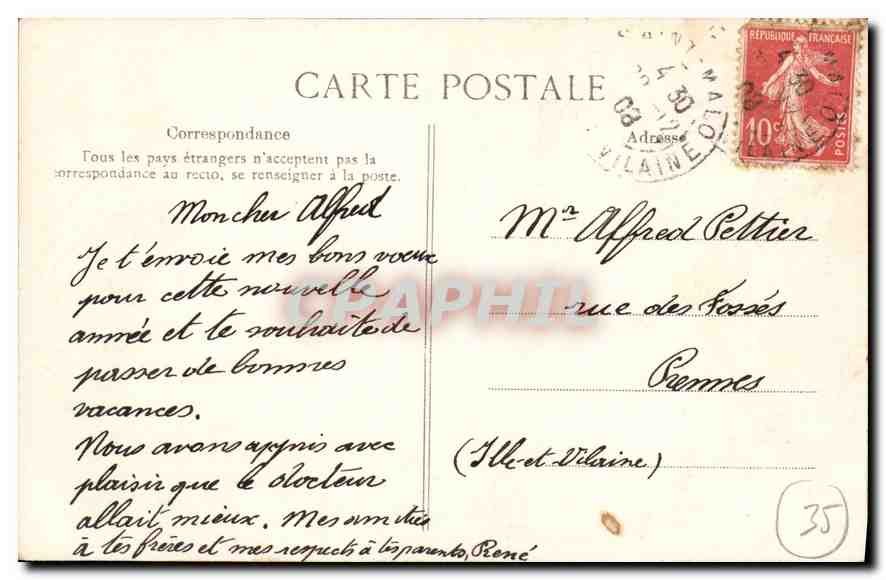 CARTE POSTALE
RÉPUBLIQUE FRANÇAISE
10c
POSTES
SAINT-MALO
4 30
-12
08
VILAINE
Correspondance
Tous les pays étrangers n'acceptent pas la
correspondance au recto, se renseigner à la poste.
Adresse
Mon cher Alfred
Je t'envoie mes bons voeux
pour cette nouvelle
année et te souhaite de
passer de bonnes
vacances.
Nous avons appris avec
plaisir que le docteur
allait mieux. Mes amitiés
à tes frères et mes respects à tes parents, René
Mr Alfred Pettier
rue des Fossés
Rennes
(Ille-et-Vilaine)
35
CPAPHIL